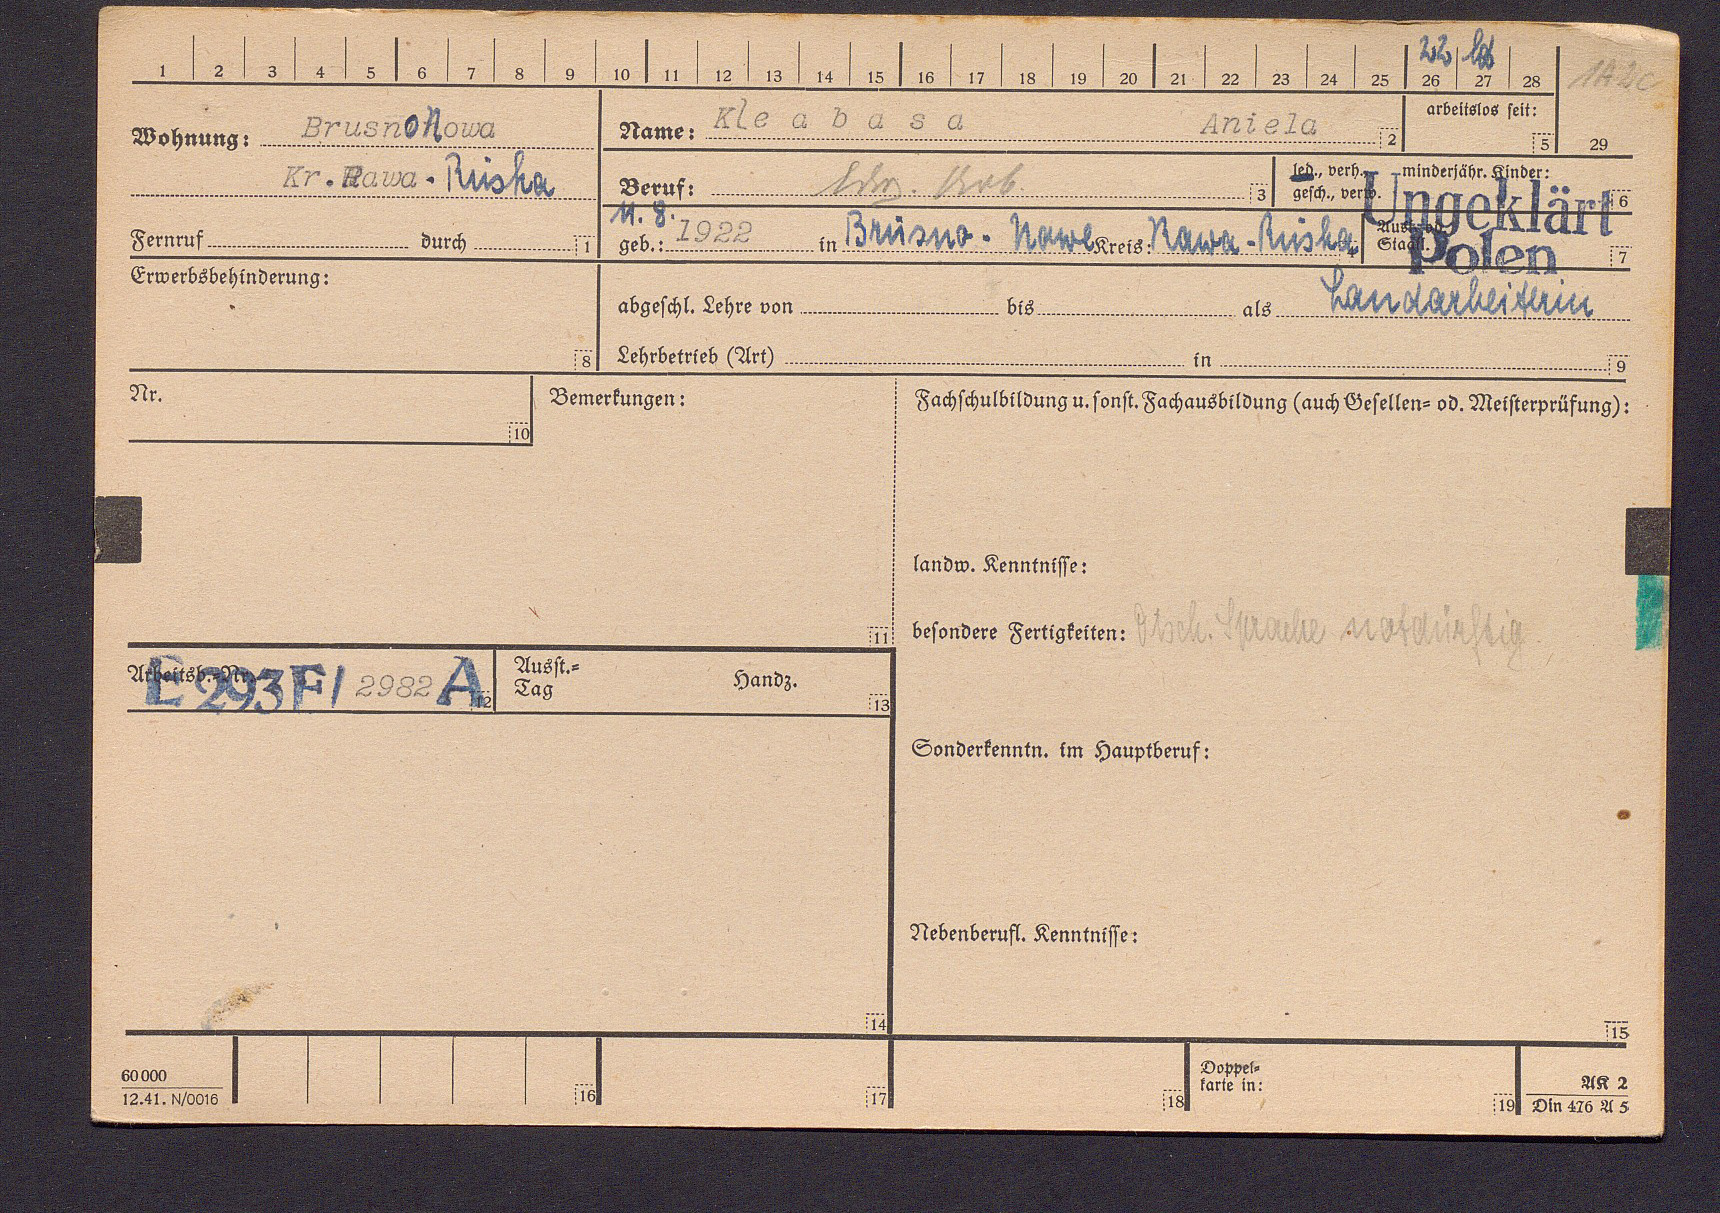 22
1 2 3 4 5 6 7 8 9 10 11 12 13 14 15 16 17 18 19 20 21 22 23 24 25 26 27 28
Wohnung: BrusnoNowa
Kr. Rawa-Ruska
Fernruf durch 1
Name: Kleabasa Aniela 2
arbeitslos seit: 5
29
Beruf: 3
led., verh., gesch., verw.
minderjähr. Kinder: 6
11. 8.
geb.: 1922 in Brusno-Nowe Kreis: Rawa-Ruska 4
Ungeklärt
Polen
7
Erwerbsbehinderung: 8
abgeschl. Lehre von bis als Landarbeiterin
Lehrbetrieb (Art) in 9
Nr. 10
Bemerkungen: 11
Fachschulbildung u. sonst. Fachausbildung (auch Gesellen- od. Meisterprüfung):
landw. Kenntnisse:
besondere Fertigkeiten: Dtsch. Sprache notdürftig
Arbeitsb.-Nr. E 293F/ 2982 A 12
Ausst.-
Tag
Handz. 13
Sonderkenntn. im Hauptberuf:
Nebenberufl. Kenntnisse:
14
15
60 000
12.41. N/0016
16
17
18
Doppel-
karte in: 19
AK 2
Din 476 A 5